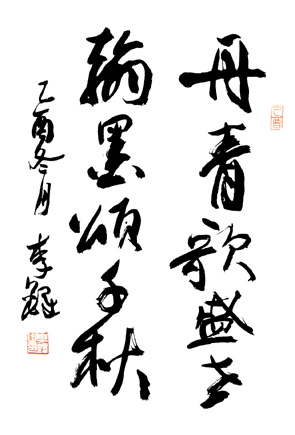 丹青歌盛世
翰墨颂千秋
乙酉冬月 李